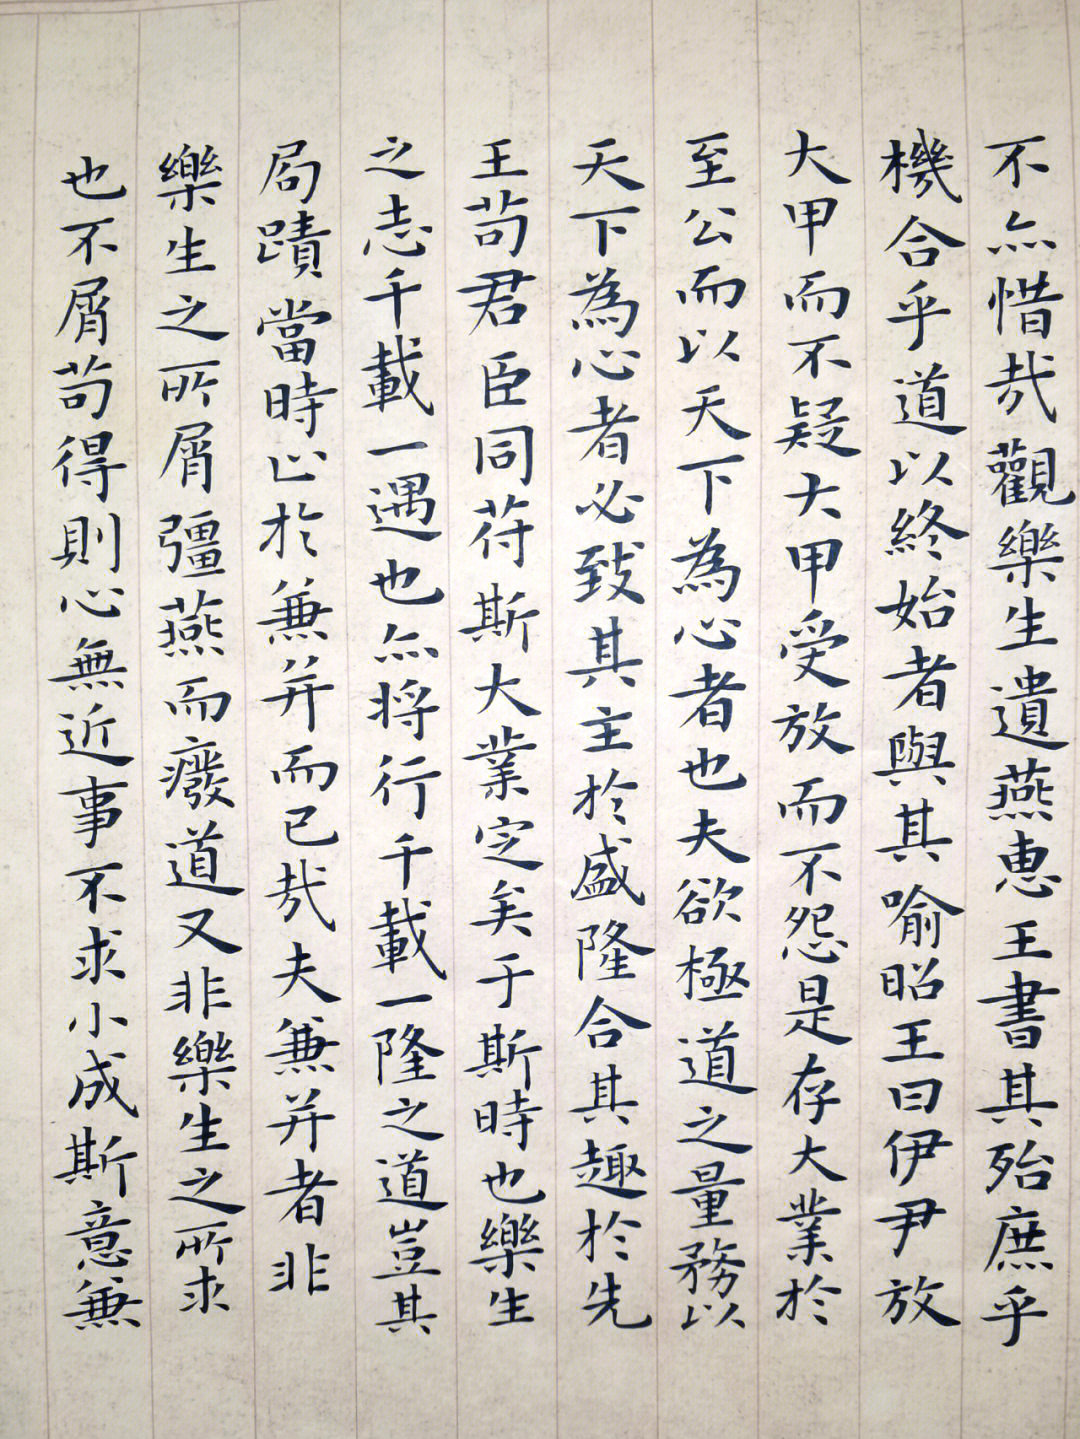 不亦惜哉觀樂生遺燕惠王書其殆庶乎
機合乎道以終始者與其喻昭王曰伊尹放
大甲而不疑大甲受放而不怨是存大業於
至公而以天下為心者也夫欲極道之量務以
天下為心者必致其主於盛隆合其趣於先
王苟君臣同苻斯大業定矣于斯時也樂生
之志千載一遇也亦將行千載一隆之道豈其
局蹟當時止於兼并而已哉夫兼并者非
樂生之所屑彊燕而癈道又非樂生之所求
也不屑苟得則心無近事不求小成斯意兼